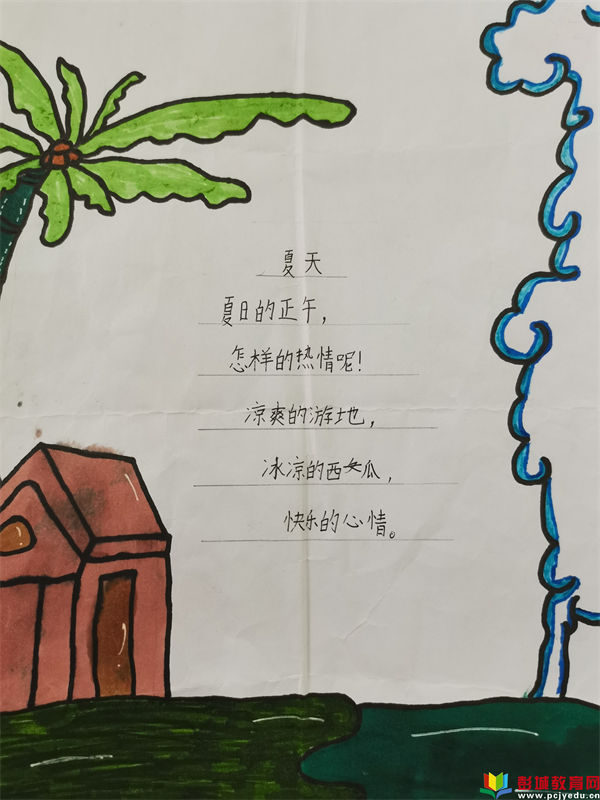 夏天
夏日的正午，
怎样的热情呢！
凉爽的游地，
冰凉的西瓜，
快乐的心情。
彭城教育网
www.pcjyedu.cn